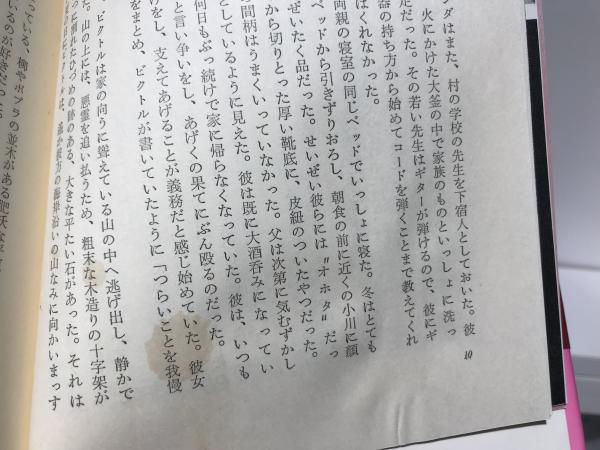 10
ンダはまた、村の学校の先生を下宿人としておいた。彼
火にかけた大釜の中で家族のものといっしょに洗っ
定だった。その若い先生はギターが弾けるので、彼にギ
器の持ち方から始めてコードを弾くことまで教えてくれ
はくれなかった。
両親の寝室の同じベッドでいっしょに寝た。冬はとても
ベッドから引きずりおろし、朝食の前に近くの小川に顔
ぜいたく品だった。せいぜい彼らには〝オホタ〟だっ
から切りとった厚い靴底に、皮紐のついたやつだった。
の間柄はうまくいっていなかった。父は次第に気むずかし
としているように見えた。彼は既に大酒呑みになってい
何日もぶっ続けで家に帰らなくなっていた。彼は、いつも
と言い争いをし、あげくの果てにぶん殴るのだった。
をし、支えてあげることが義務だと感じ始めていた。彼女
をまとめ、ビクトルが書いていたように「つらいことを我慢
ビクトルは家の向うに聳えている山の中へ逃げ出し、静かで
た。山の上には、悪霊を追い払うため、粗末な木造りの十字架が
つに割れたひづめの跡のある、大きな平たい石があった。それは
遥か彼方の海岸沿いの山なみに向かいまっす
っている、柳やポプラの並木がある肥沃な
いるのが好きだった